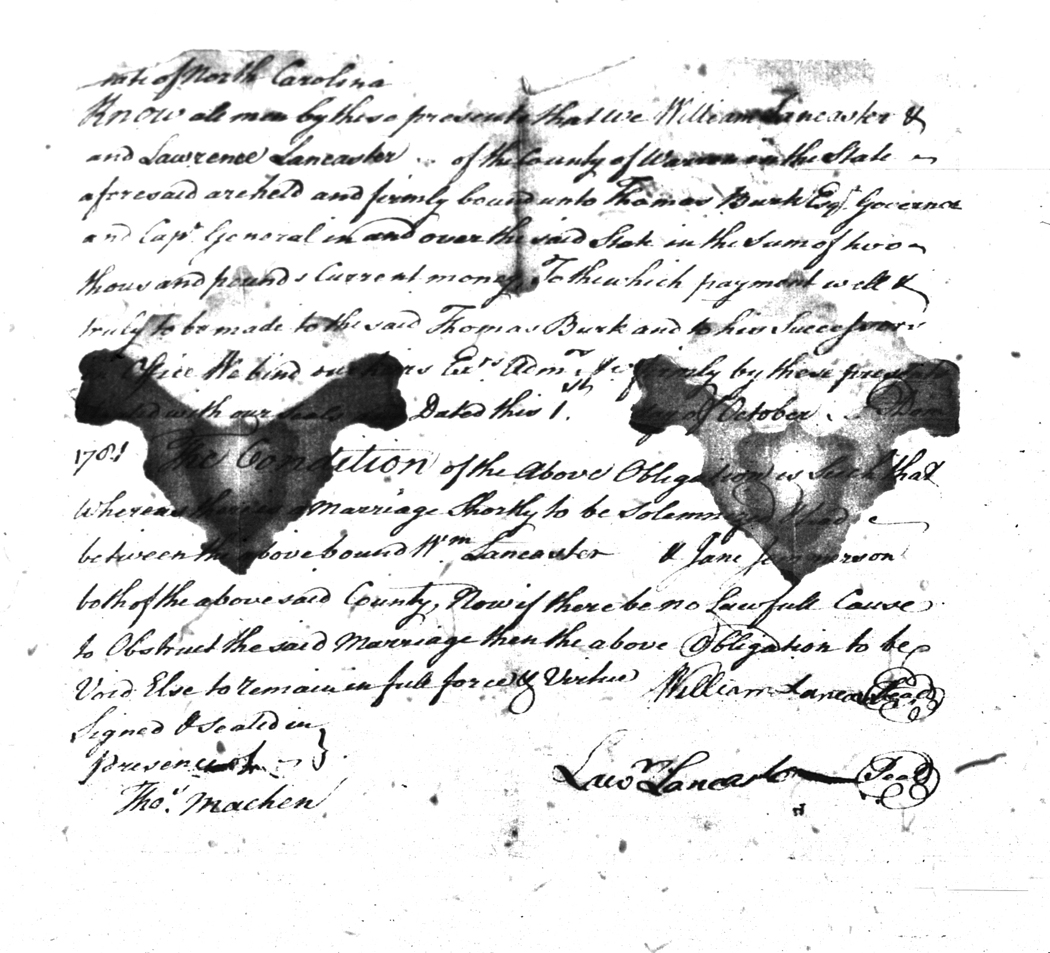 State of North Carolina
Know all men by these presents that we William Lancaster &
and Lawrence Lancaster of the County of Warren in the State
aforesaid are held and firmly bound unto Thomas Burk Esqr. Governor
and Capt. General in and over the said State in the Sum of two
thousand pounds Current money To the which payment well &
truly to be made to the said Thomas Burk and to his Successors
Office We bind our heirs Exrs. Admrs. firmly by these presents
with our seals Dated this 1st. day of October Dom
1781 The Condition of the Above Obligation is Such that
Whereas there is a Marriage Shortly to be Solemnized & had
between the above bound Wm Lancaster & Jane
both of the above said County, Now if there be no Lawfull Cause
to Obstruct the said Marriage then the above Obligation to be
Void Else to remain in full force & Virtue William Lancaster Seal
Signed & sealed in
presence of
Thos. Machen
Lawr. Lancaster Seal